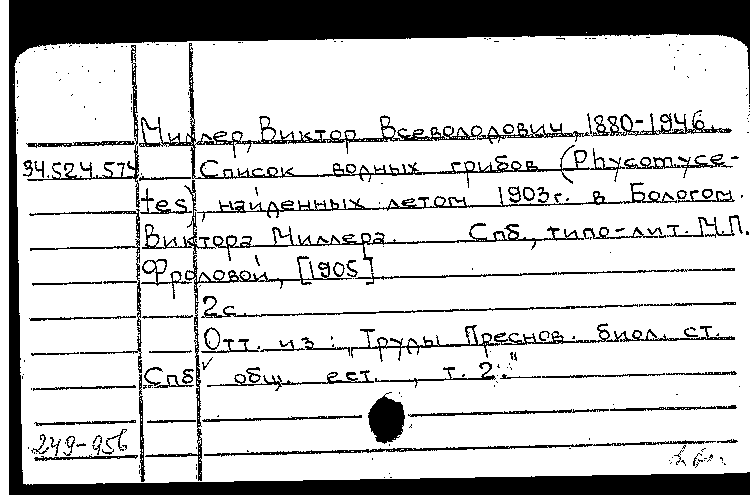 Миллер, Виктор Всеволодович, 1880-1946.
34.524.574. Список водных грибов (Phycomyce-
tes), найденных летом 1903г. в Бологом.
Виктора Миллера. Спб., типо-лит. М.П.
Фроловой, [1905]
2с.
Отт. из: „Труды Преснов. биол. ст.
Спб общ. ест., т. 2."
249-956